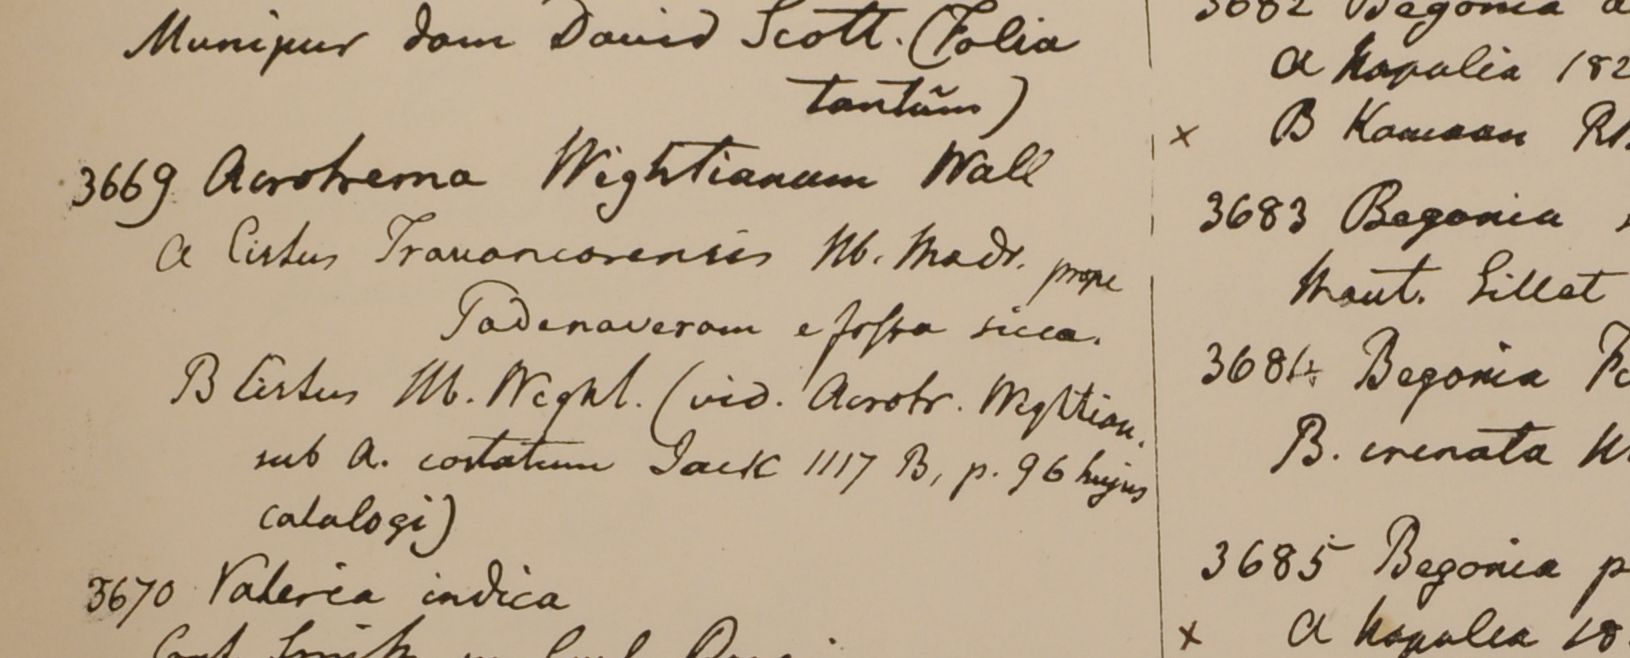 Munipur dom David Scott. (Folia
tantūm)
3669 Acrotrema Wightianum Wall
a Cistus Travancorensis Hb. Madr. prope
Padenaveram e fossa sicca.
B Cistus Hb. Wight. (vid. Acrotr. Wightian.
sub A. costatum Jack 1117 B, p. 96 hujus
catalogi)
3670 Valeria indica
3682 Begonia
a Napalia 182
x B Kamaon
3683 Begonia
Mont. Sillet
3684 Begonia
B. crenata
3685 Begonia p
x a Napalia 18